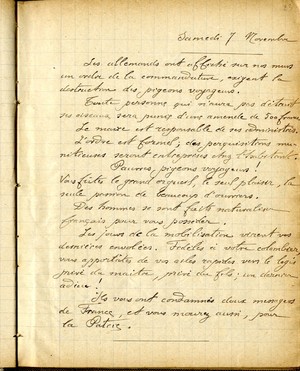 Samedi 7 Novembre
Les allemands ont affiché sur nos murs
un ordre de la commandanture, exigeant la
destruction des pigeons voyageurs.
Toute personne qui n'aura pas détruit
ses oiseaux sera punie d'une amende de 500 francs
Le maire est responsable de ses administrés.
L'ordre est formel; des perquisitions mi-
nutieuses seront entreprises chez l'habitant.
Pauvres pigeons voyageurs!
Vous faites le grand orgueil, le seul plaisir, la
seule passion de beaucoup d'ouvriers.
Des hommes se sont fait naturaliser
français pour vous posséder.
Les jours de la mobilisation virent vos
dernières envolées. Fidèles à votre colombier,
vous apportâtes de vos ailes rapides vers le logis
privé du maître, privé du fils, un dernier
adieu!
Ils vous ont condamnés doux messagers
de France, et vous mourez aussi, pour
la Patrie.